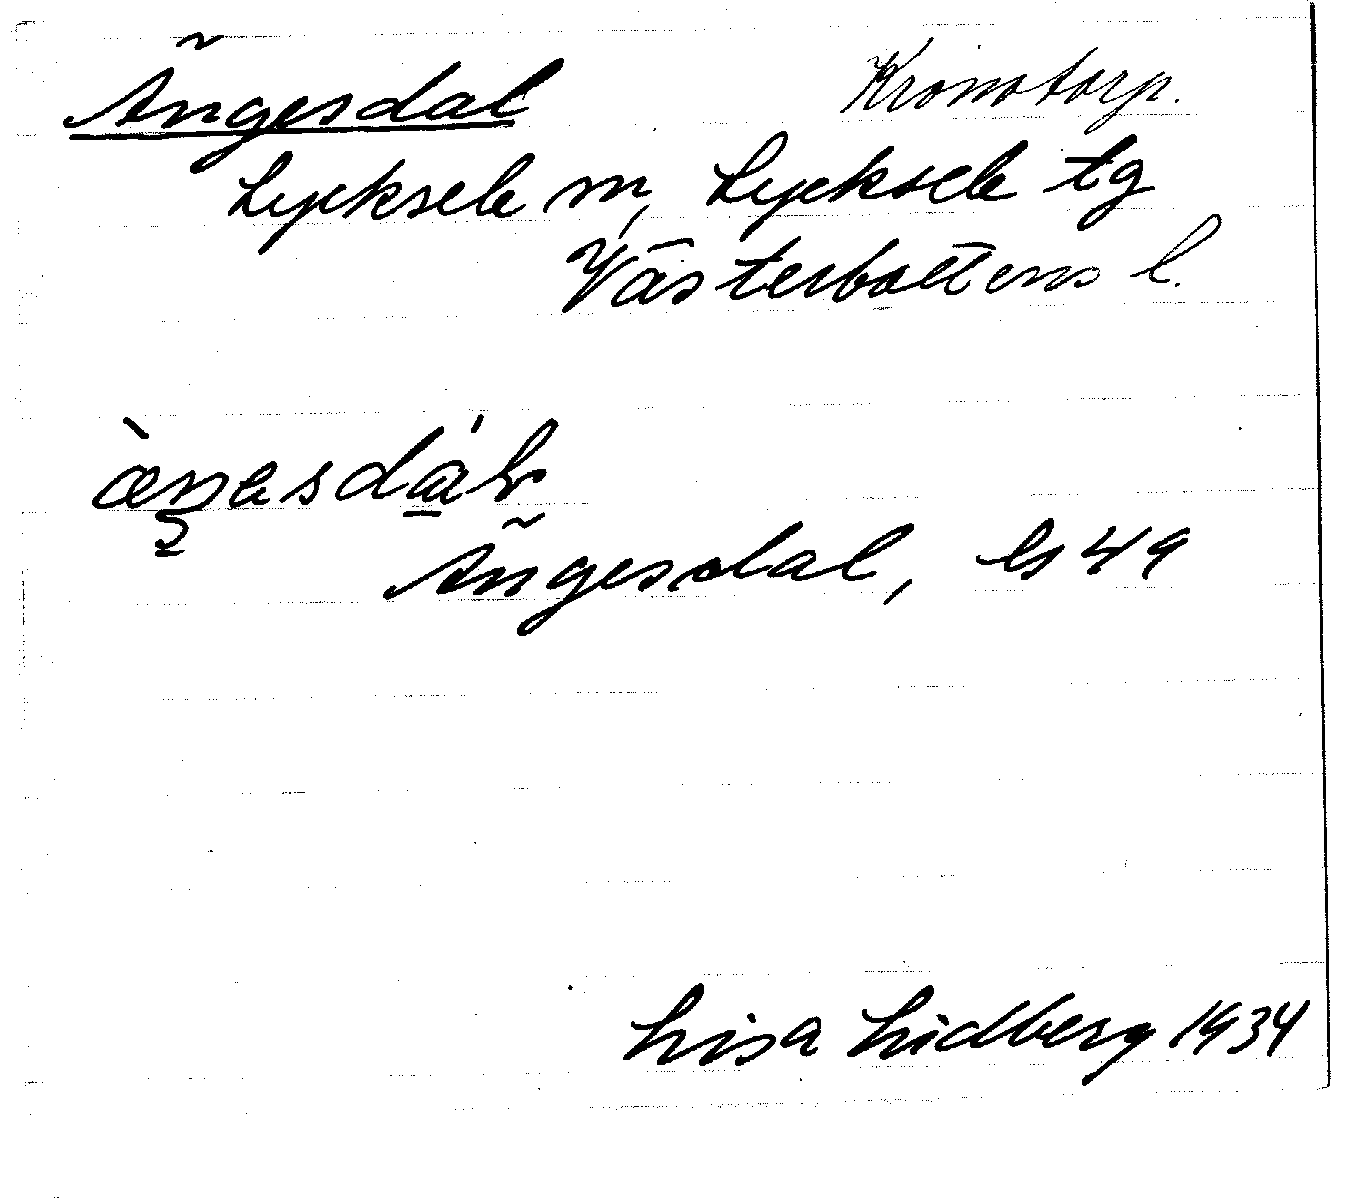 Ängesdal Kronotorp.
Lycksele m, Lycksele tg
Västerbottens l.
Ängesdal, 49
Lisa Lidberg 1934